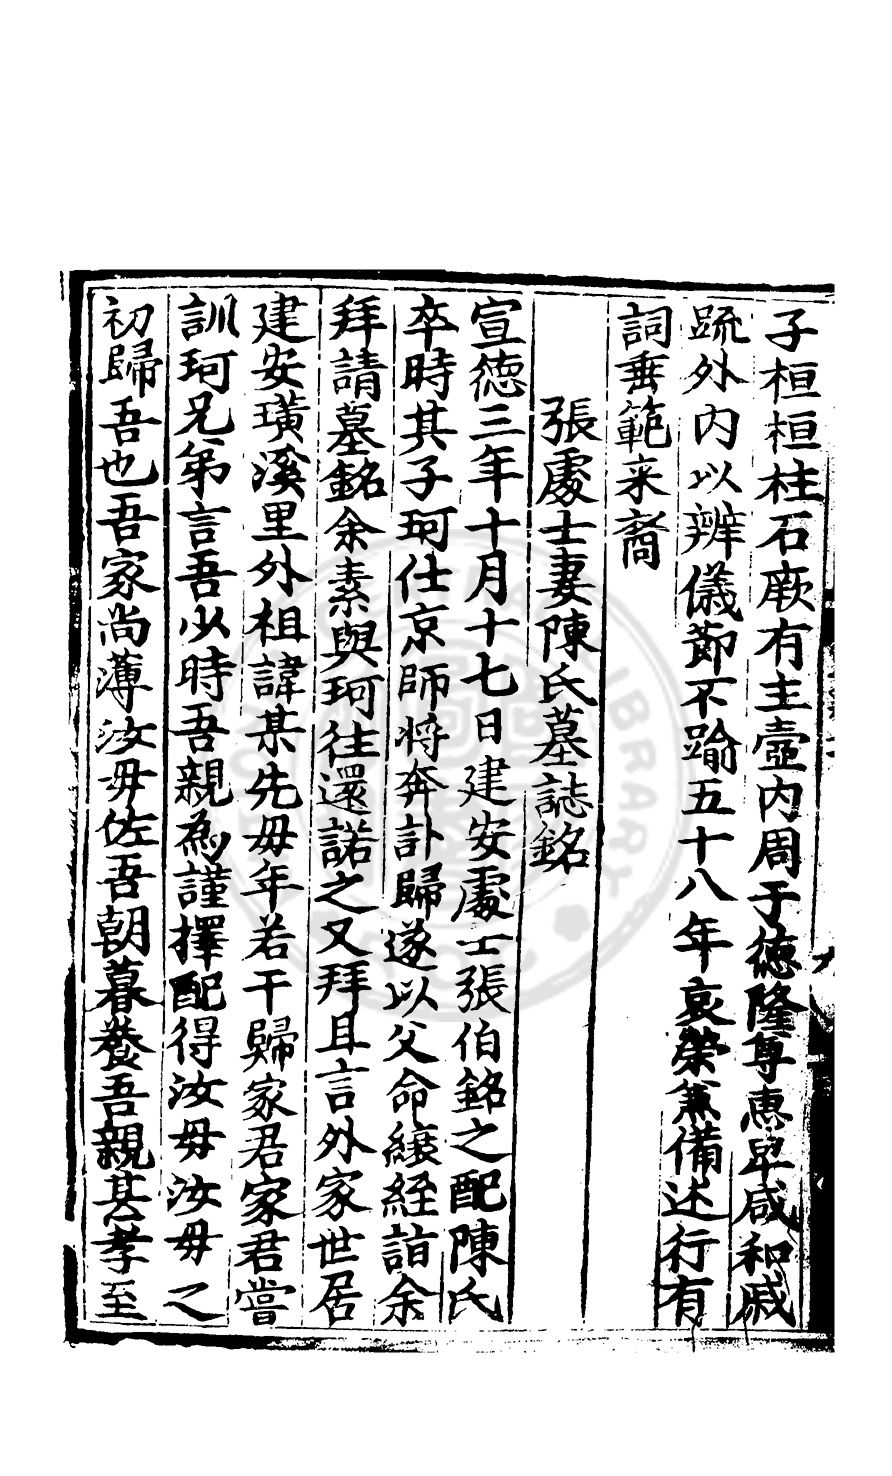 子桓桓柱石厥有主壼內周于德隆尊惠卑咸和戚
疏外內以辨儀節不踰五十八年哀榮兼備述行有
詞垂範来裔
張處士妻陳氏墓誌銘
宣德三年十月十七日建安處士張伯銘之配陳氏
卒時其子珂仕京師将奔訃歸遂以父命縗絰詣余
拜請墓銘余素與珂往還諾之又拜且言外家世居
建安璜溪里外祖諱某先毋年若干歸家君家君嘗
訓珂兄弟言吾少時吾親為謹擇配得汝毋汝毋之
初歸吾也吾家尚薄汝毋佐吾朝暮養吾親甚孝至